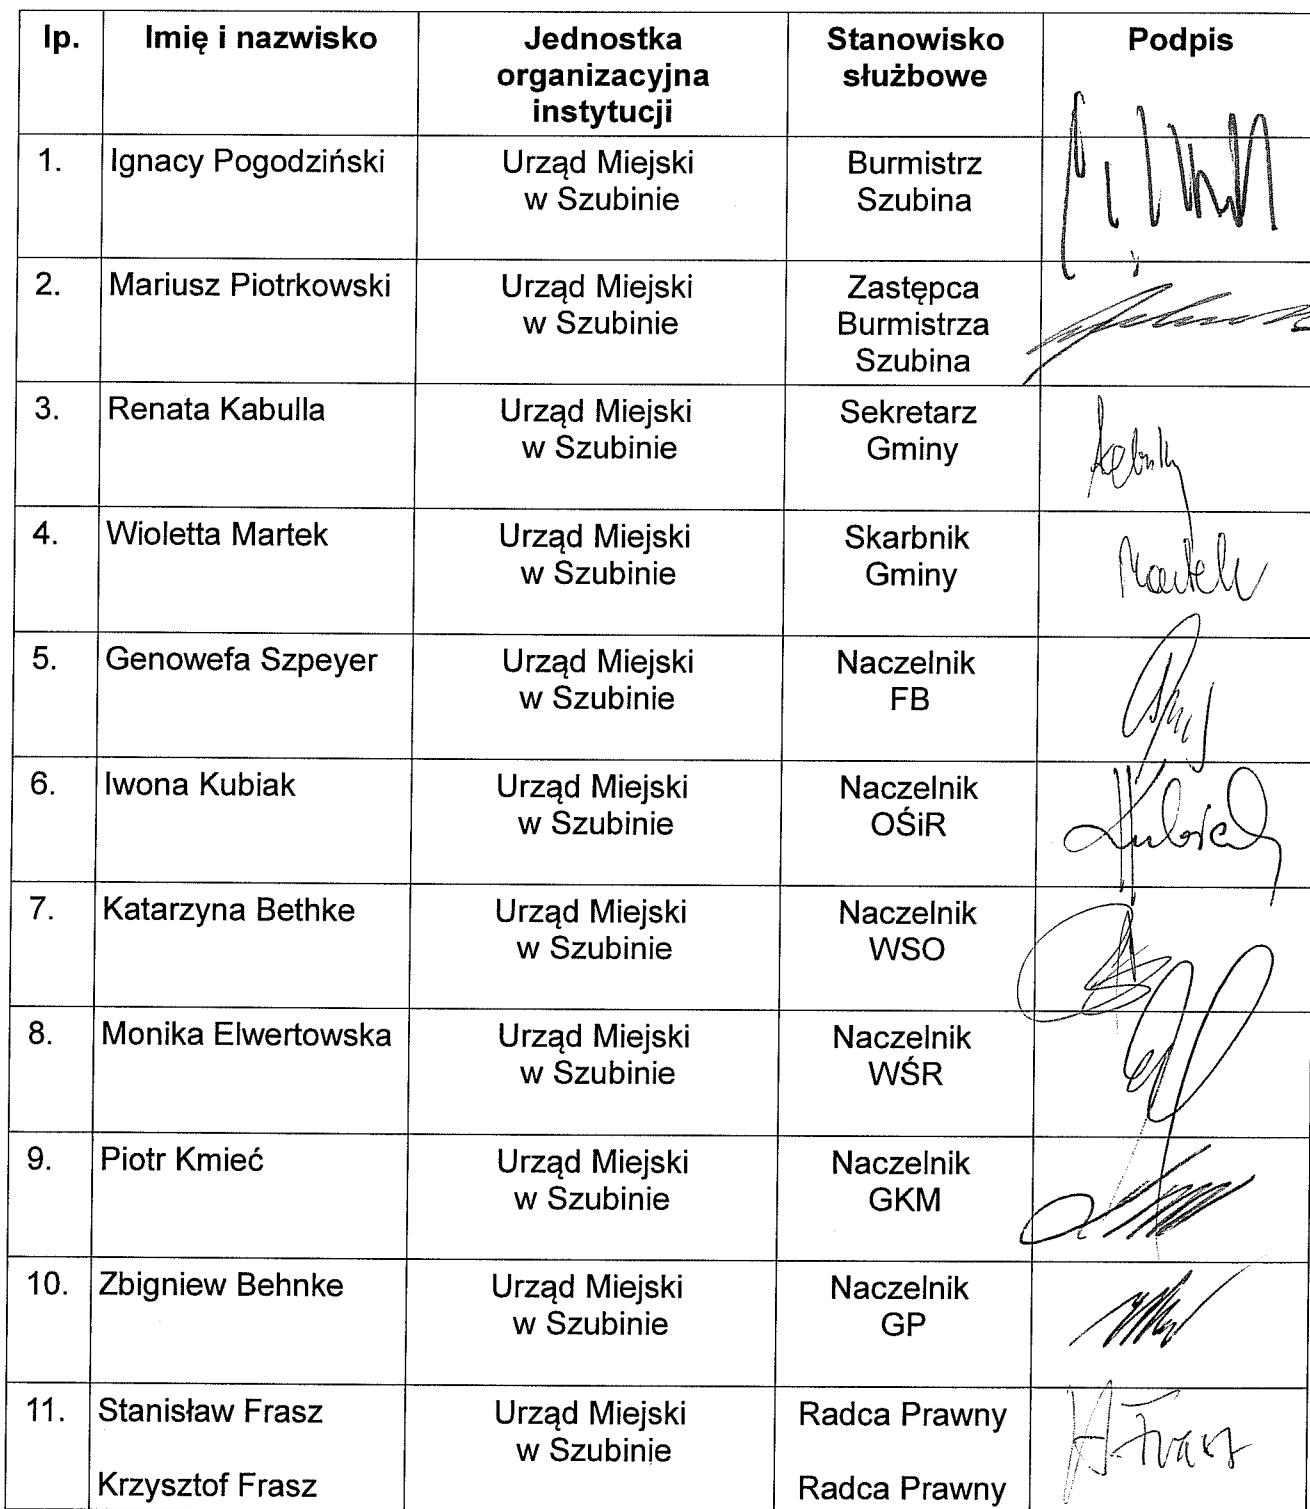 lp. Imię i nazwisko Jednostka organizacyjna instytucji Stanowisko służbowe Podpis
1. Ignacy Pogodziński Urząd Miejski w Szubinie Burmistrz Szubina
2. Mariusz Piotrkowski Urząd Miejski w Szubinie Zastępca Burmistrza Szubina
3. Renata Kabulla Urząd Miejski w Szubinie Sekretarz Gminy
4. Wioletta Martek Urząd Miejski w Szubinie Skarbnik Gminy Martek
5. Genowefa Szpeyer Urząd Miejski w Szubinie Naczelnik FB
6. Iwona Kubiak Urząd Miejski w Szubinie Naczelnik OŚiR Kubiak
7. Katarzyna Bethke Urząd Miejski w Szubinie Naczelnik WSO
8. Monika Elwertowska Urząd Miejski w Szubinie Naczelnik WŚR
9. Piotr Kmieć Urząd Miejski w Szubinie Naczelnik GKM
10. Zbigniew Behnke Urząd Miejski w Szubinie Naczelnik GP
11. Stanisław Frasz Urząd Miejski w Szubinie Radca Prawny Frasz
Krzysztof Frasz Radca Prawny